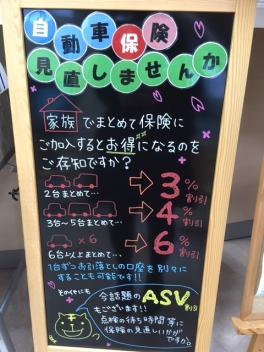 自動車保険
見直しませんか
家族でまとめて保険に
ご加入するとお得になるのを
ご存知ですか？
2台まとめて… → 3%割引
3台〜5台まとめて… → 4%割引
×6
6台以上まとめて… → 6%割引
1台ずつお引落としの口座を別々に
することも可能です!!
そのほかにも
今話題のASV割引
もございます!!
点検の待ち時間等に
保険の見直しいかが
ですか。